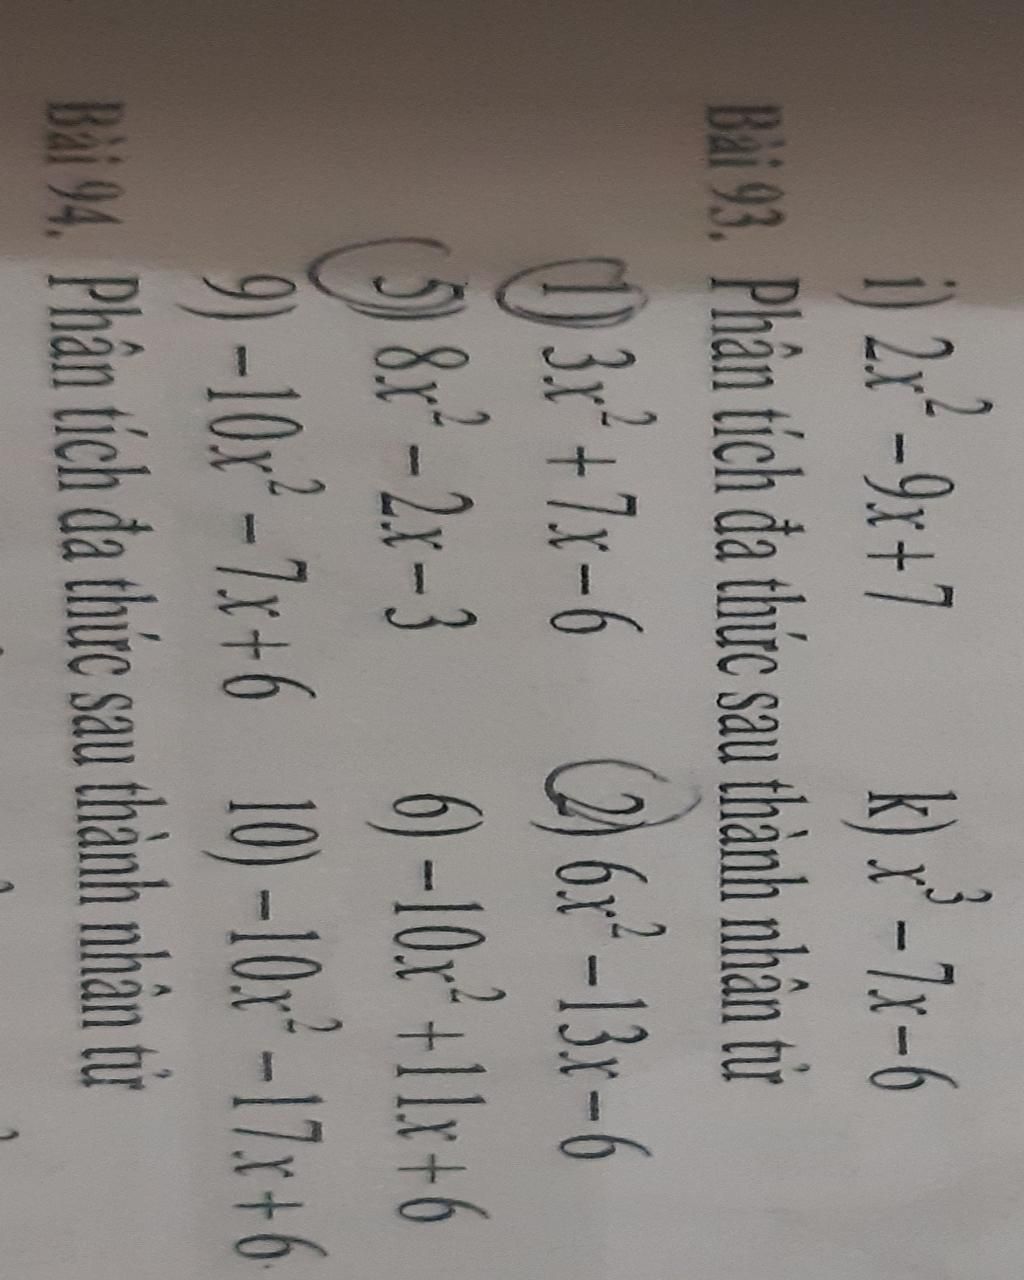 i) 2x² – 9x + 7 k) x³ – 7x – 6
Bài 93. Phân tích đa thức sau thành nhân tử
1) 3x² + 7x – 6 2) 6x² – 13x – 6
5) 8x² – 2x – 3 6) –10x² + 11x + 6
9) –10x² – 7x + 6 10) –10x² – 17x + 6
Bài 94. Phân tích đa thức sau thành nhân tử